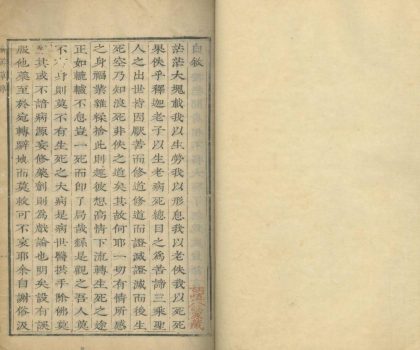 自敘
茫茫大塊載我以生勞我以形息我以死死
果佚乎釋迦老子以生老病死總目之為苦諦三乘聖
人之出世皆因厭苦而修道修道而證滅證滅而後生
死空乃知浪死非佚之道矣其故何耶一切有情所感
之身福業雜糅捨此則趣彼想高情下流轉生死之途
正如轆轤不息豈一死而即了局哉繇是觀之吾人莫
不有身則莫不有生死之大病是病世醫拱手除佛莫
其或不諳病源妄修藥劑則為戲論也明矣設有誤
服他藥至於宛轉辭城而莫救可不哀耶余自謝俗汲